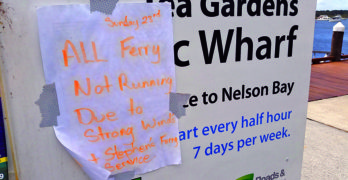 Sunday 29th
ALL Ferry
Not Running
Due to
Strong Winds
Stephens Ferry
Service
Tea Gardens
c Wharf
e to Nelson Bay
art every half hour
7 days per week.
Roads &